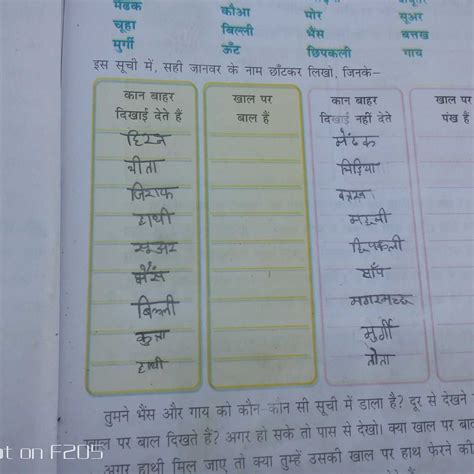 मेंढक कौआ मोर सुअर
चूहा बिल्ली भैंस बत्तख
मुर्गी ऊँट छिपकली गाय
इस सूची में, सही जानवर के नाम छाँटकर लिखो, जिनके–
कान बाहर दिखाई देते हैं
खाल पर बाल हैं
कान बाहर दिखाई नहीं देते
खाल पर पंख हैं
हिरन मेंढक
चीता चिड़िया
जिराफ बत्तख
हाथी मछली
सूअर छिपकली
भैंस साँप
बिल्ली मगरमच्छ
कुत्ता मुर्गी
हाथी तोता
तुमने भैंस और गाय को कौन-कौन सी सूची में डाला है? दूर से देखने
खाल पर बाल दिखते हैं? अगर हो सके तो पास से देखो। क्या खाल पर बाल
अगर हाथी मिल जाए तो क्या तुम्हें उसकी खाल पर हाथ फेरने की
ot on F205